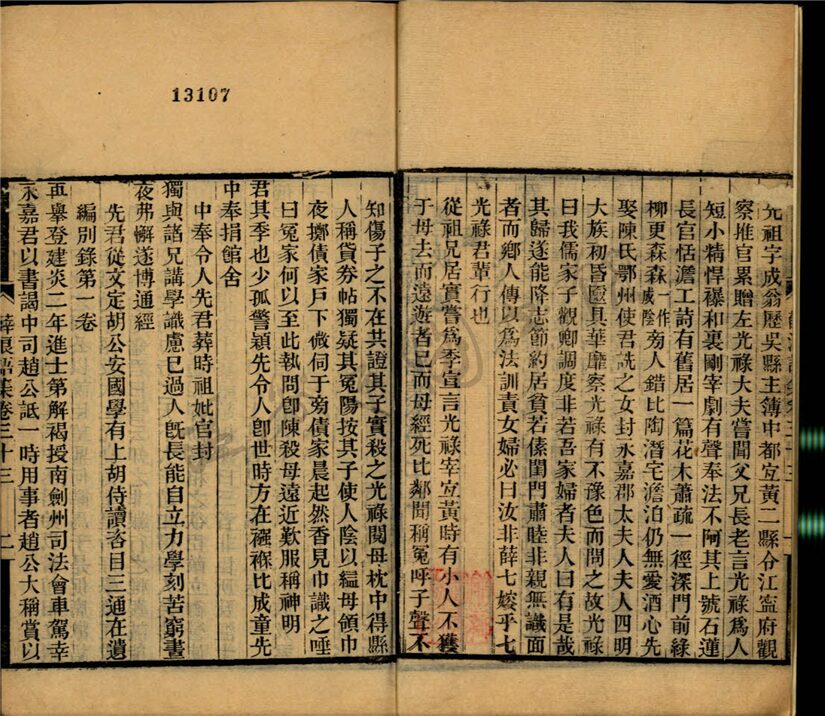 13107
允祖字成翁歷吳縣主簿中都宜黃二縣令江寧府觀
察推官累贈左光祿大夫嘗聞父兄長老言光祿爲人
短小精悍襮和裏剛宰劇有聲奉法不阿其上號石蓮
長官恬澹工詩有舊居一篇花木蕭疏一徑深門前綠
柳更森森一作威陰旁人錯比陶潛宅澹泊仍無愛酒心先
娶陳氏鄂州使君詵之女封永嘉郡太夫人夫人四明
大族初昏匳具華靡察光祿有不豫色而問之故光祿
曰我儒家子觀卿調度非若吾家婦者夫人曰有是哉
其歸遂能降志節約居貧若傣閨門肅睦非親無識面
者而鄉人傳以爲法訓責女婦必曰汝非薛七嫂乎七
光祿君輩行也
從祖兄居實嘗爲季宣言光祿宰宜黃時有小人不獲
于母去而遠遊者已而母經死比鄰聞稱冤呼子聲不
知傷子之不在共證其子實殺之光祿閱母枕中得縣
人稱貸券帖獨疑其冤陽按其子使人陰以縊母領巾
夜擲債家戶下微伺于旁債家晨起然香見巾識之唾
曰冤家何以至此執問卽陳殺母遠近歎服稱神明
君其季也少孤警穎先令人卽世時方在襁褓比成童先
中奉捐館舍
中奉令人先君葬時祖妣官封
獨與諸兄講學識慮已過人旣長能自立力學刻苦窮晝
夜弗懈遂博通經
先君從文定胡公安國學有上胡侍讀咨目三通在遺
編別錄第一卷
再舉登建炎二年進士第解褐授南劍州司法會車駕幸
永嘉君以書謁中司趙公詆一時用事者趙公大稱賞以
薛浪語集卷三十三
二